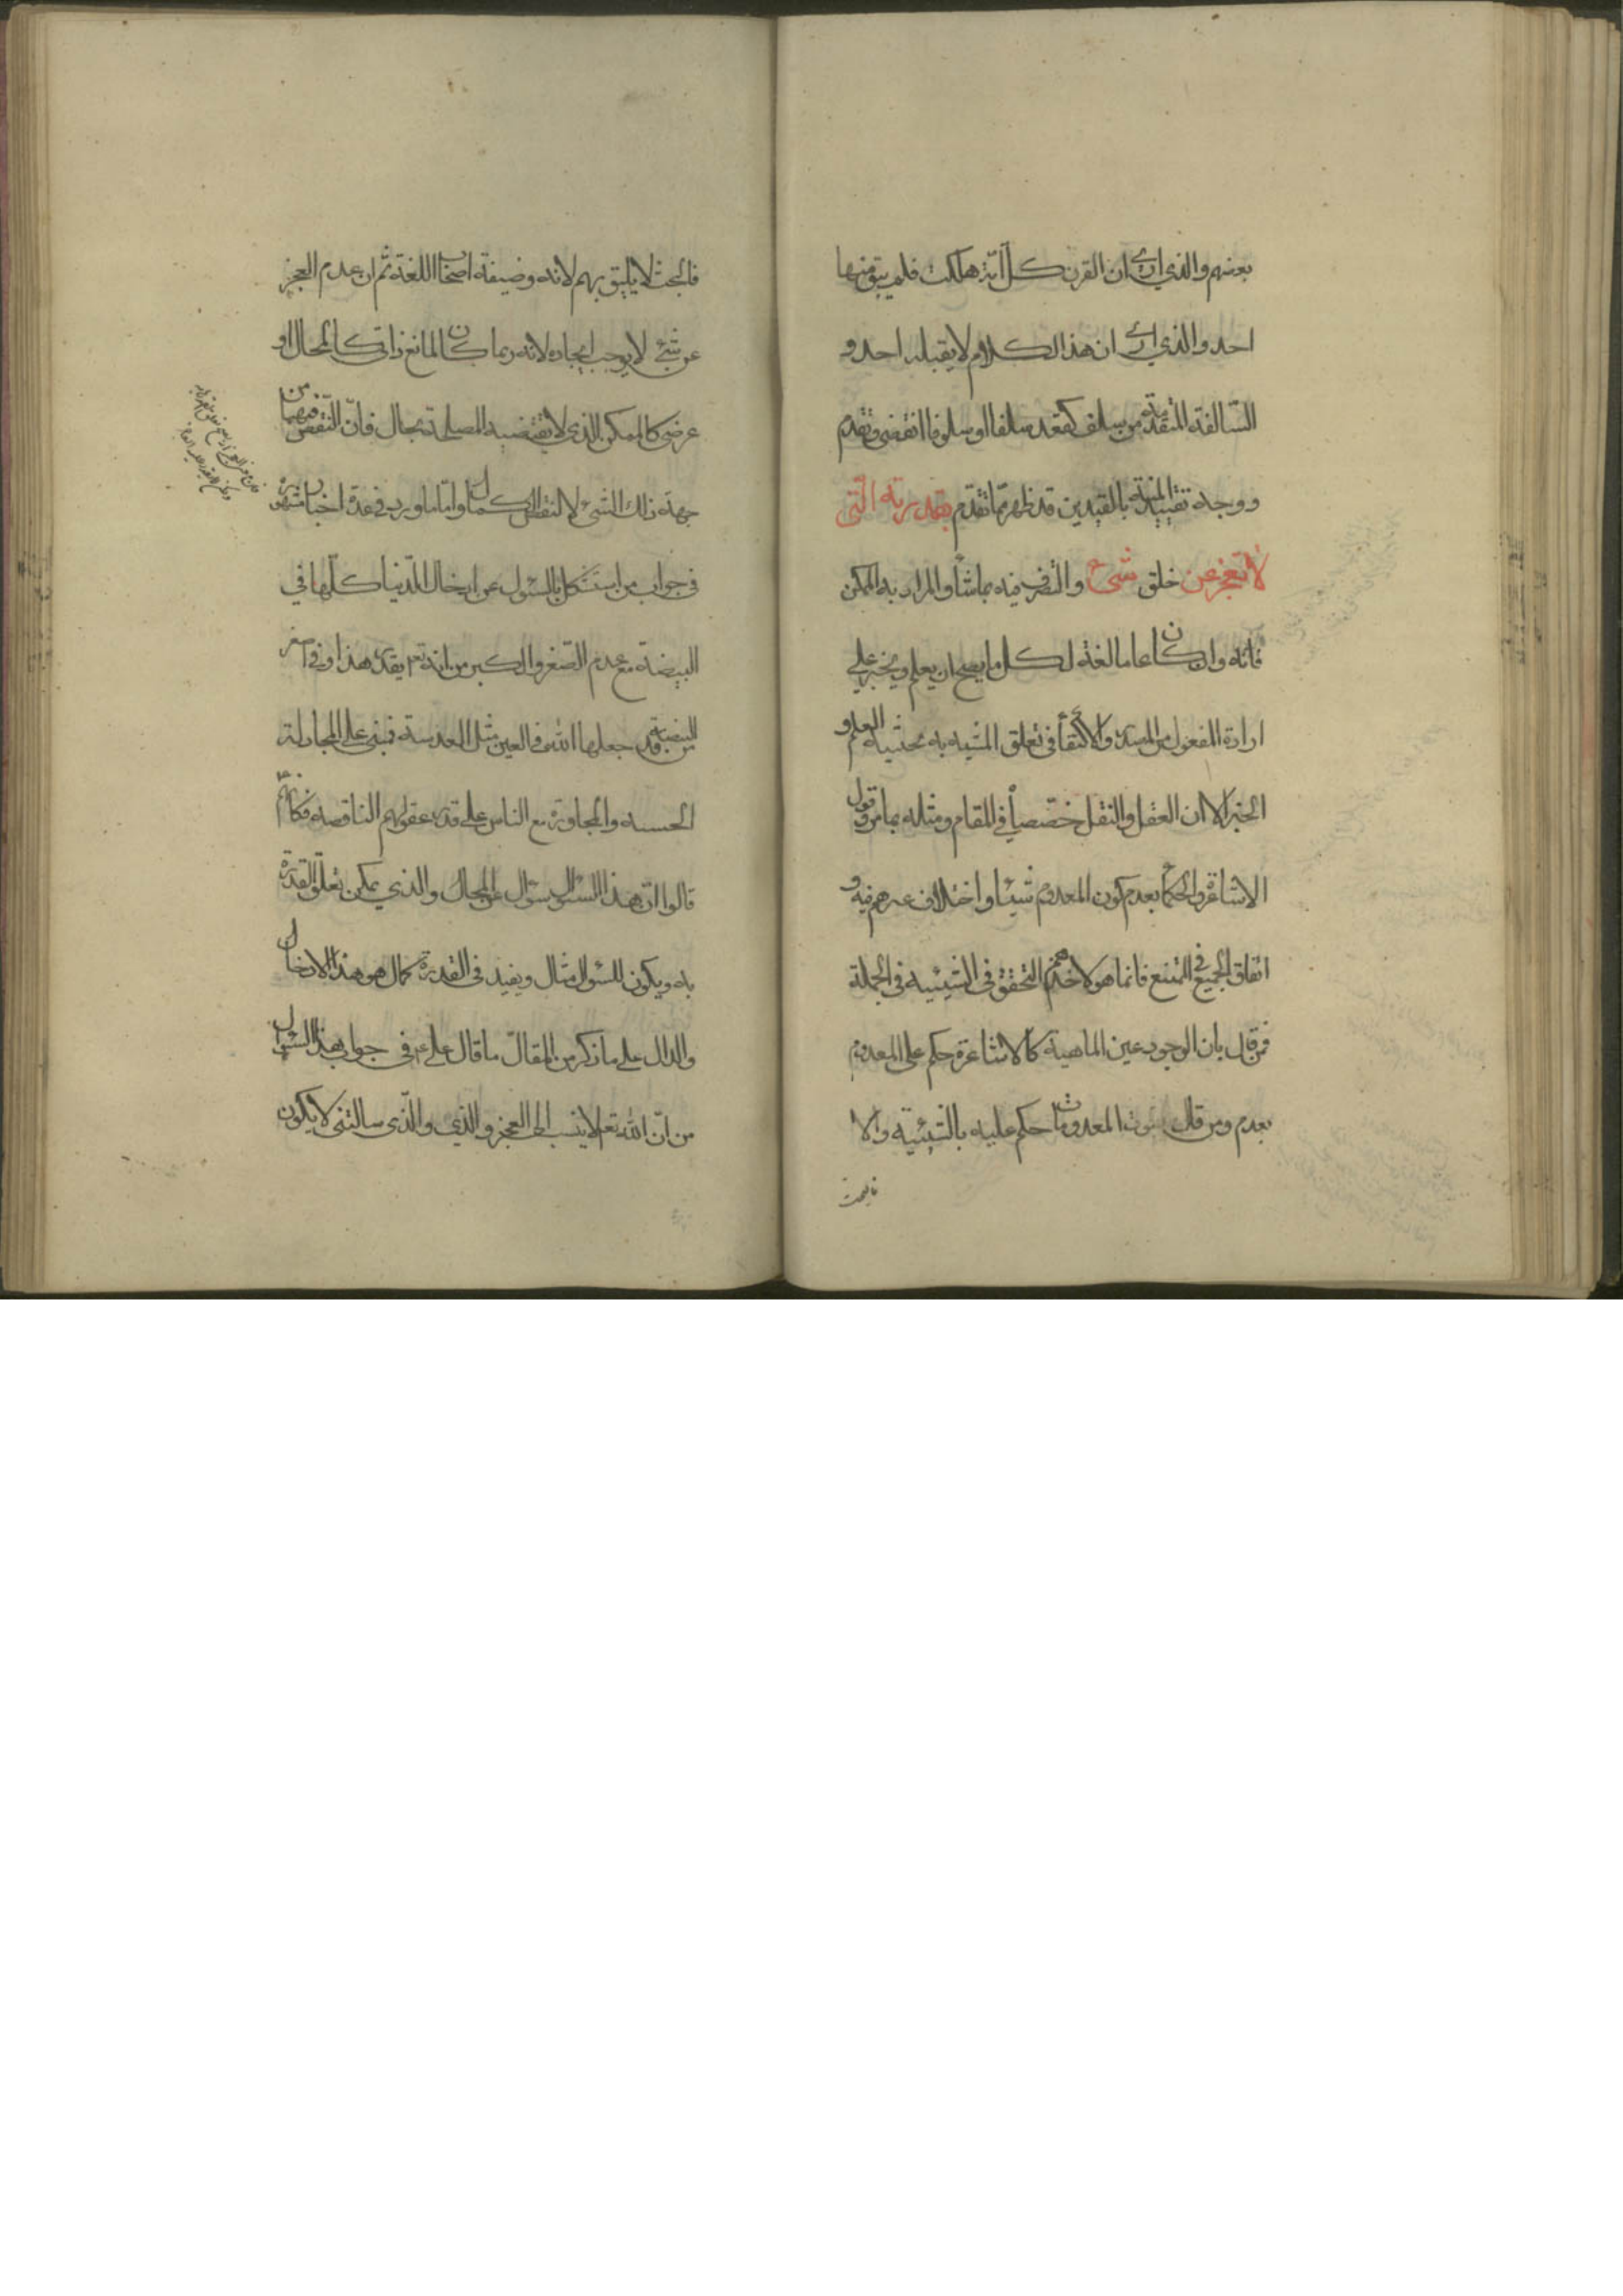 بعضهم والذي ارى ان القرن كل امة هلكت فلم يبق منها
احد والذي ارى ان هذا الكلام لا يقبله احد و
السّالفة المتقدمة من سلف كقعد سلفا او سلوفا انقضى وتقدم
ووجه تقييد المنة بالقيدين قد ظهر ممّا تقدّم بقدرته الّتى
لا تعجز عن خلق شئ والتصرف فيه بما شاء والمراد به الممكن
فانه وان كان عاما لغة لكل ما يصح ان يعلم ويخبر على
ارادة المفعول من المصدر والاكتفاء فى تعلق المشية به بحثيية العلم و
الخبر الا ان العقل والنقل خصّصاه فى المقام ومثله بما مر وقول
الاشاعرة والحكماء بعدم كون المعدوم شيئا واختلاف غيرهم فيه و
اتفاق الجميع فى الممتنع فانما هو لاخذهم التحقق فى الشيئية فى الجملة
فمن قال بان الوجود عين الماهية كالاشاعرة حكم على المعدوم
بعدم ومن قال بثبوت المعدومات حكم عليه بالشيئية والا
فالبحث
فالبحث لا يليق بهم لانه وضيفة اصحاب اللغة ثم ان عدم العجز
عن شئ لا يوجب ايجاده لانه ربما كان المانع ذاتى كالمحال او
عرضى كالممكن الذى لا يقتضيه المصلحة بحال فانّ النّقص فيهما من
جهة ذلك الشئ لا لنقص الكمال واما ما ورد فى عدة اخبار مشهورة
فى جواب من استشكل بالسئول عن ادخال الدنيا كلّها فى
البيضة مع عدم الصّغر والكبر من انه تع يقدر هذا وفى اصغر
من البيضة قد جعلها الله فى العين مثل العدسة فمبنى على المجادلة
الحسنه والمجاوبة مع الناس على قدر عقولهم الناقصه فكانّهم
قالوا انّ هذا السئول سئوال عن المحال والذي يمكن تعلّق القدرة
به ويكون للسئول مثال ويفيد فى القدرة كمال هو هذا الادخال
والدال على ما ذكر من المقال ما قال على ع فى جواب هذا السئوال
من انّ الله تع لا ينسب الى العجز والذي والّذى سالتنى لا يكون